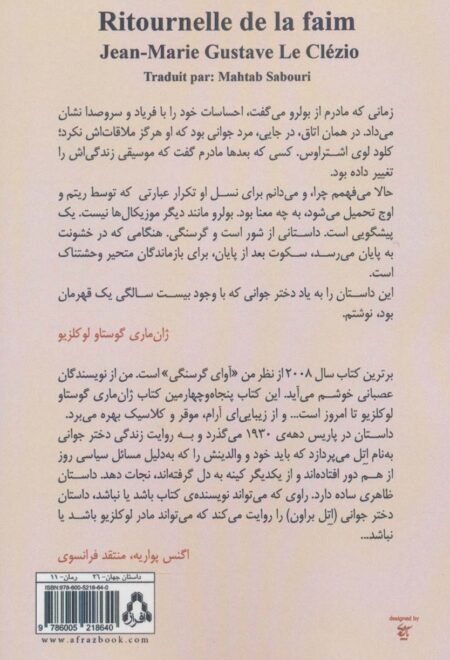 Ritournelle de la faim
Jean-Marie Gustave Le Clézio
Traduit par: Mahtab Sabouri
زمانی که مادرم از بولرو می‌گفت، احساسات خود را با فریاد و سروصدا نشان
می‌داد. در همان اتاق، در جایی، مرد جوانی بود که او هرگز ملاقات‌اش نکرد؛
کلود لوی اشتراوس. کسی که بعدها مادرم گفت که موسیقی زندگی‌اش را
تغییر داده بود.
حالا می‌فهمم چرا، و می‌دانم برای نسل او تکرار عبارتی که توسط ریتم و
اوج تحمیل می‌شود، به چه معنا بود. بولرو مانند دیگر موزیکال‌ها نیست. یک
پیشگویی است. داستانی از شور است و گرسنگی. هنگامی که در خشونت
به پایان می‌رسد، سکوت بعد از پایان، برای بازماندگان متحیر وحشتناک
است.
این داستان را به یاد دختر جوانی که با وجود بیست سالگی یک قهرمان
بود، نوشتم.
ژان‌ماری گوستاو لوکلزیو
برترین کتاب سال ۲۰۰۸ از نظر من «آوای گرسنگی» است. من از نویسندگان
عصبانی خوشم می‌آید. این کتاب پنجاه‌وچهارمین کتاب ژان‌ماری گوستاو
لوکلزیو تا امروز است... و از زیبایی‌ای آرام، موقر و کلاسیک بهره می‌برد.
داستان در پاریس دهه‌ی ۱۹۳۰ می‌گذرد و به روایت زندگی دختر جوانی
به‌نام اِتل می‌پردازد که باید خود و والدینش را که به‌دلیل مسائل سیاسی روز
از هم دور افتاده‌اند و از یکدیگر کینه به دل گرفته‌اند، نجات دهد. داستان
ظاهری ساده دارد. راوی که می‌تواند نویسنده‌ی کتاب باشد یا نباشد، داستان
دختر جوانی (اِتل براون) را روایت می‌کند که می‌تواند مادر لوکلزیو باشد یا
نباشد...
اگنس پواریه، منتقد فرانسوی
داستان جهان-۲۶ رمان-۱۱
ISBN:978-600-5218-64-0
9 786005 218640
افراز
www.afrazbook.com
designed by